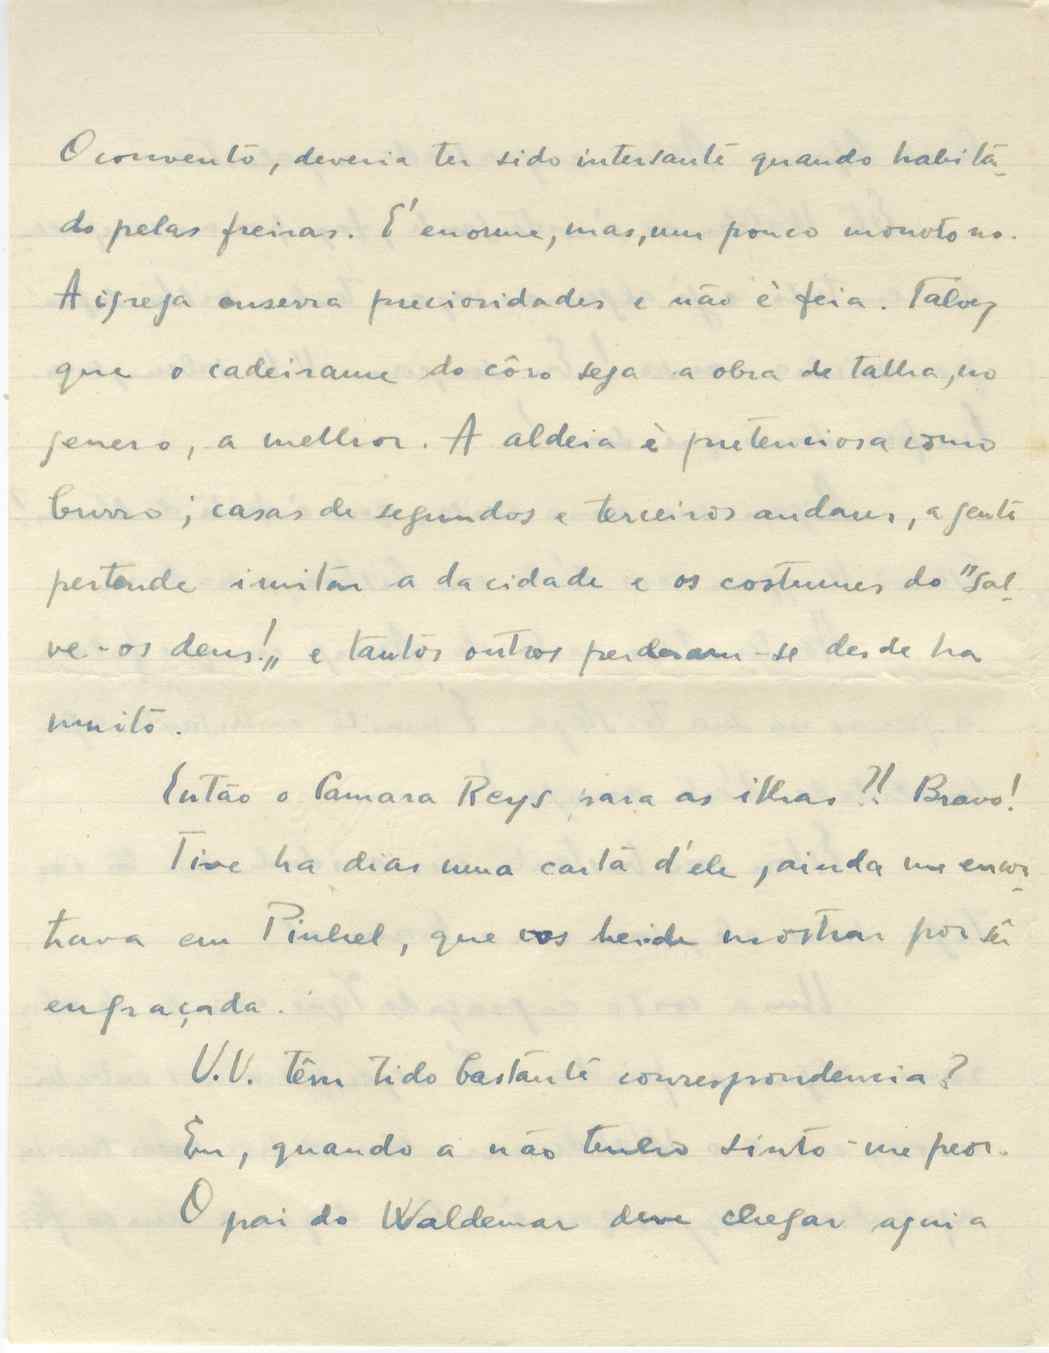 O convento, deveria ter sido intersante quando habita-
do pelas freiras. É enorme, mas, um pouco monotono.
A igreja enserra preciosidades e não è feia. Talvez
que o cadeirame do côro seja a obra de talha, no
genero, a melhor. A aldeia è pretenciosa como
burro; casas de segundos e terceiros andares, a gente
pertende imitar a da cidade e os costumes do "Sal-
ve-os deus!" e tantos outros perderam-se desde ha
muito.
Então o Camara Reys para as ilhas?!! Bravo!
Tive ha dias uma carta d'ele, ainda me encon-
trava em Pinhel, que vos heide mostrar por sêr
engraçada.
V.V. têm tido bastante correspondencia?
Eu, quando a não tenho sinto-me peor.
O pai do Waldemar deve chegar aqui a